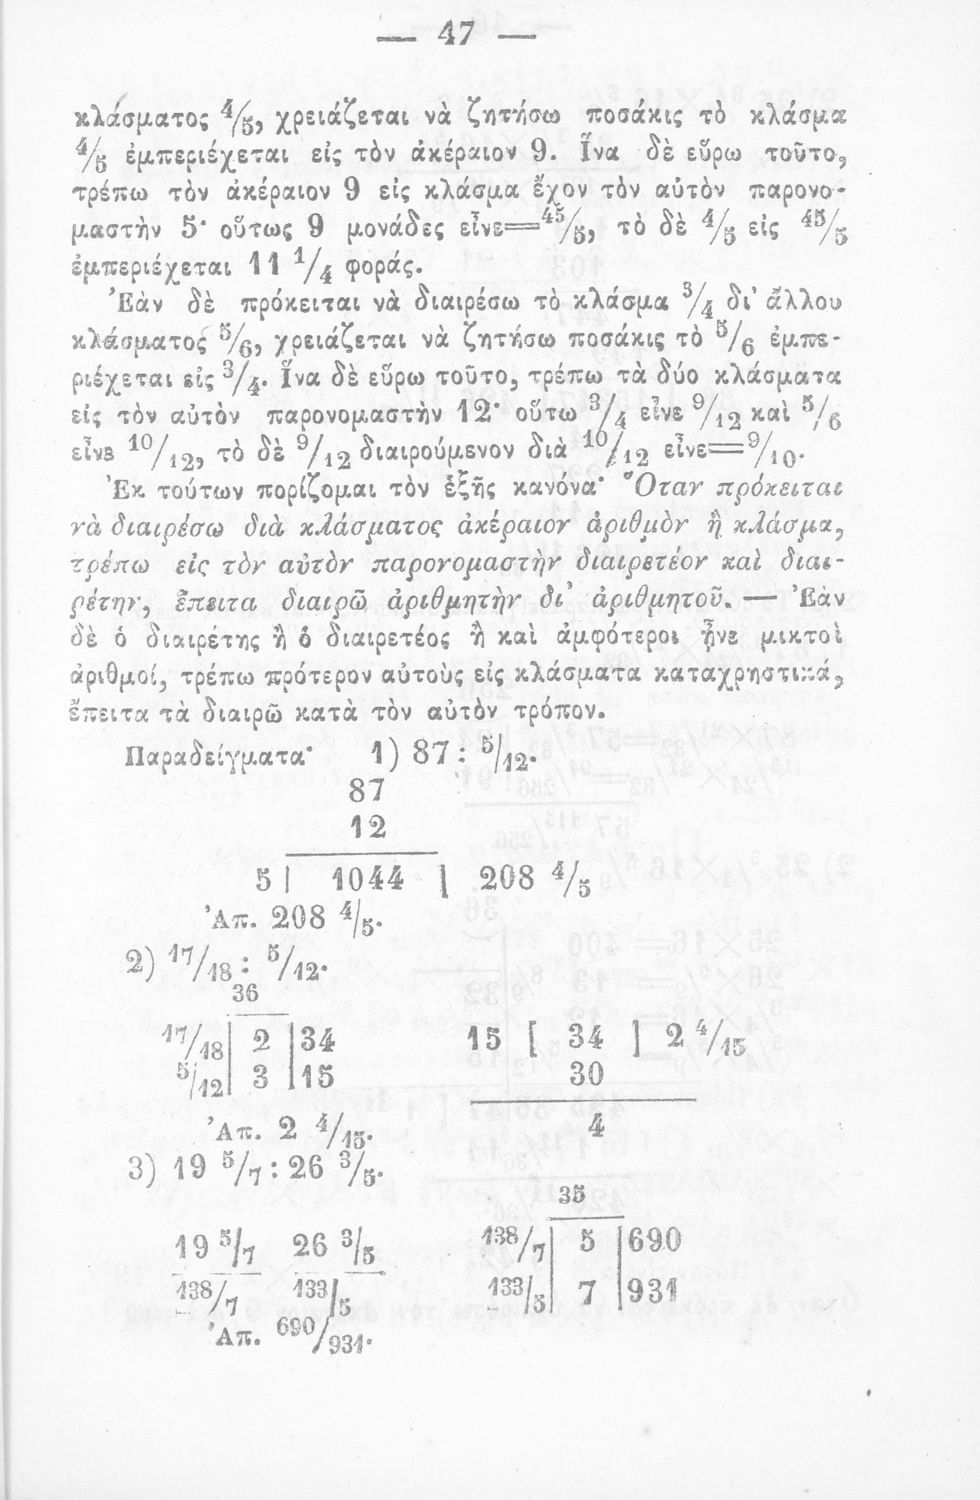 — 47 —
κλάσματος 4/5, χρειάζεται νὰ ζητήσω ποσάκις τὸ κλάσμα
4/5 ἐμπεριέχεται εἰς τὸν ἀκέραιον 9. Ἵνα δὲ εὕρω τοῦτο,
τρέπω τὸν ἀκέραιον 9 εἰς κλάσμα ἔχον τὸν αὐτὸν παρονο-
μαστὴν 5· οὕτως 9 μονάδες εἶνε=45/5, τὸ δὲ 4/5 εἰς 45/5
ἐμπεριέχεται 11 1/4 φοράς.
Ἐὰν δὲ πρόκειται νὰ διαιρέσω τὸ κλάσμα 3/4 δι' ἄλλου
κλάσματος 5/6, χρειάζεται νὰ ζητήσω ποσάκις τὸ 5/6 ἐμπε-
ριέχεται εἰς 3/4. Ἵνα δὲ εὕρω τοῦτο, τρέπω τὰ δύο κλάσματα
εἰς τὸν αὐτὸν παρονομαστὴν 12· οὕτω 3/4 εἶνε 9/12 καὶ 5/6
εἶνε 10/12, τὸ δὲ 9/12 διαιρούμενον διὰ 10/12 εἶνε=9/10.
Ἐκ τούτων πορίζομαι τὸν ἑξῆς κανόνα· Ὅταν πρόκειται
νὰ διαιρέσω διὰ κλάσματος ἀκέραιον ἀριθμὸν ἢ κλάσμα,
τρέπω εἰς τὸν αὐτὸν παρονομαστὴν διαιρετέον καὶ διαι-
ρέτην, ἔπειτα διαιρῶ ἀριθμητὴν δι' ἀριθμητοῦ. — Ἐὰν
δὲ ὁ διαιρέτης ἢ ὁ διαιρετέος ἢ καὶ ἀμφότεροι ἦνε μικτοὶ
ἀριθμοί, τρέπω πρότερον αὐτοὺς εἰς κλάσματα καταχρηστικά,
ἔπειτα τὰ διαιρῶ κατὰ τὸν αὐτὸν τρόπον.
Παραδείγματα· 1) 87 : 5/12.
87
12
5 | 1044 | 208 4/5
Ἀπ. 208 4/5.
2) 17/18 : 5/12.
36
17/18 | 2 | 34 15 [ 34 ] 2 4/15
5/12 | 3 | 15 30
Ἀπ. 2 4/15. 4
3) 19 5/7 : 26 3/5.
35
19 5/7 26 3/5 138/7 | 5 | 690
138/7 133/5 133/5 | 7 | 931
Ἀπ. 690/931.